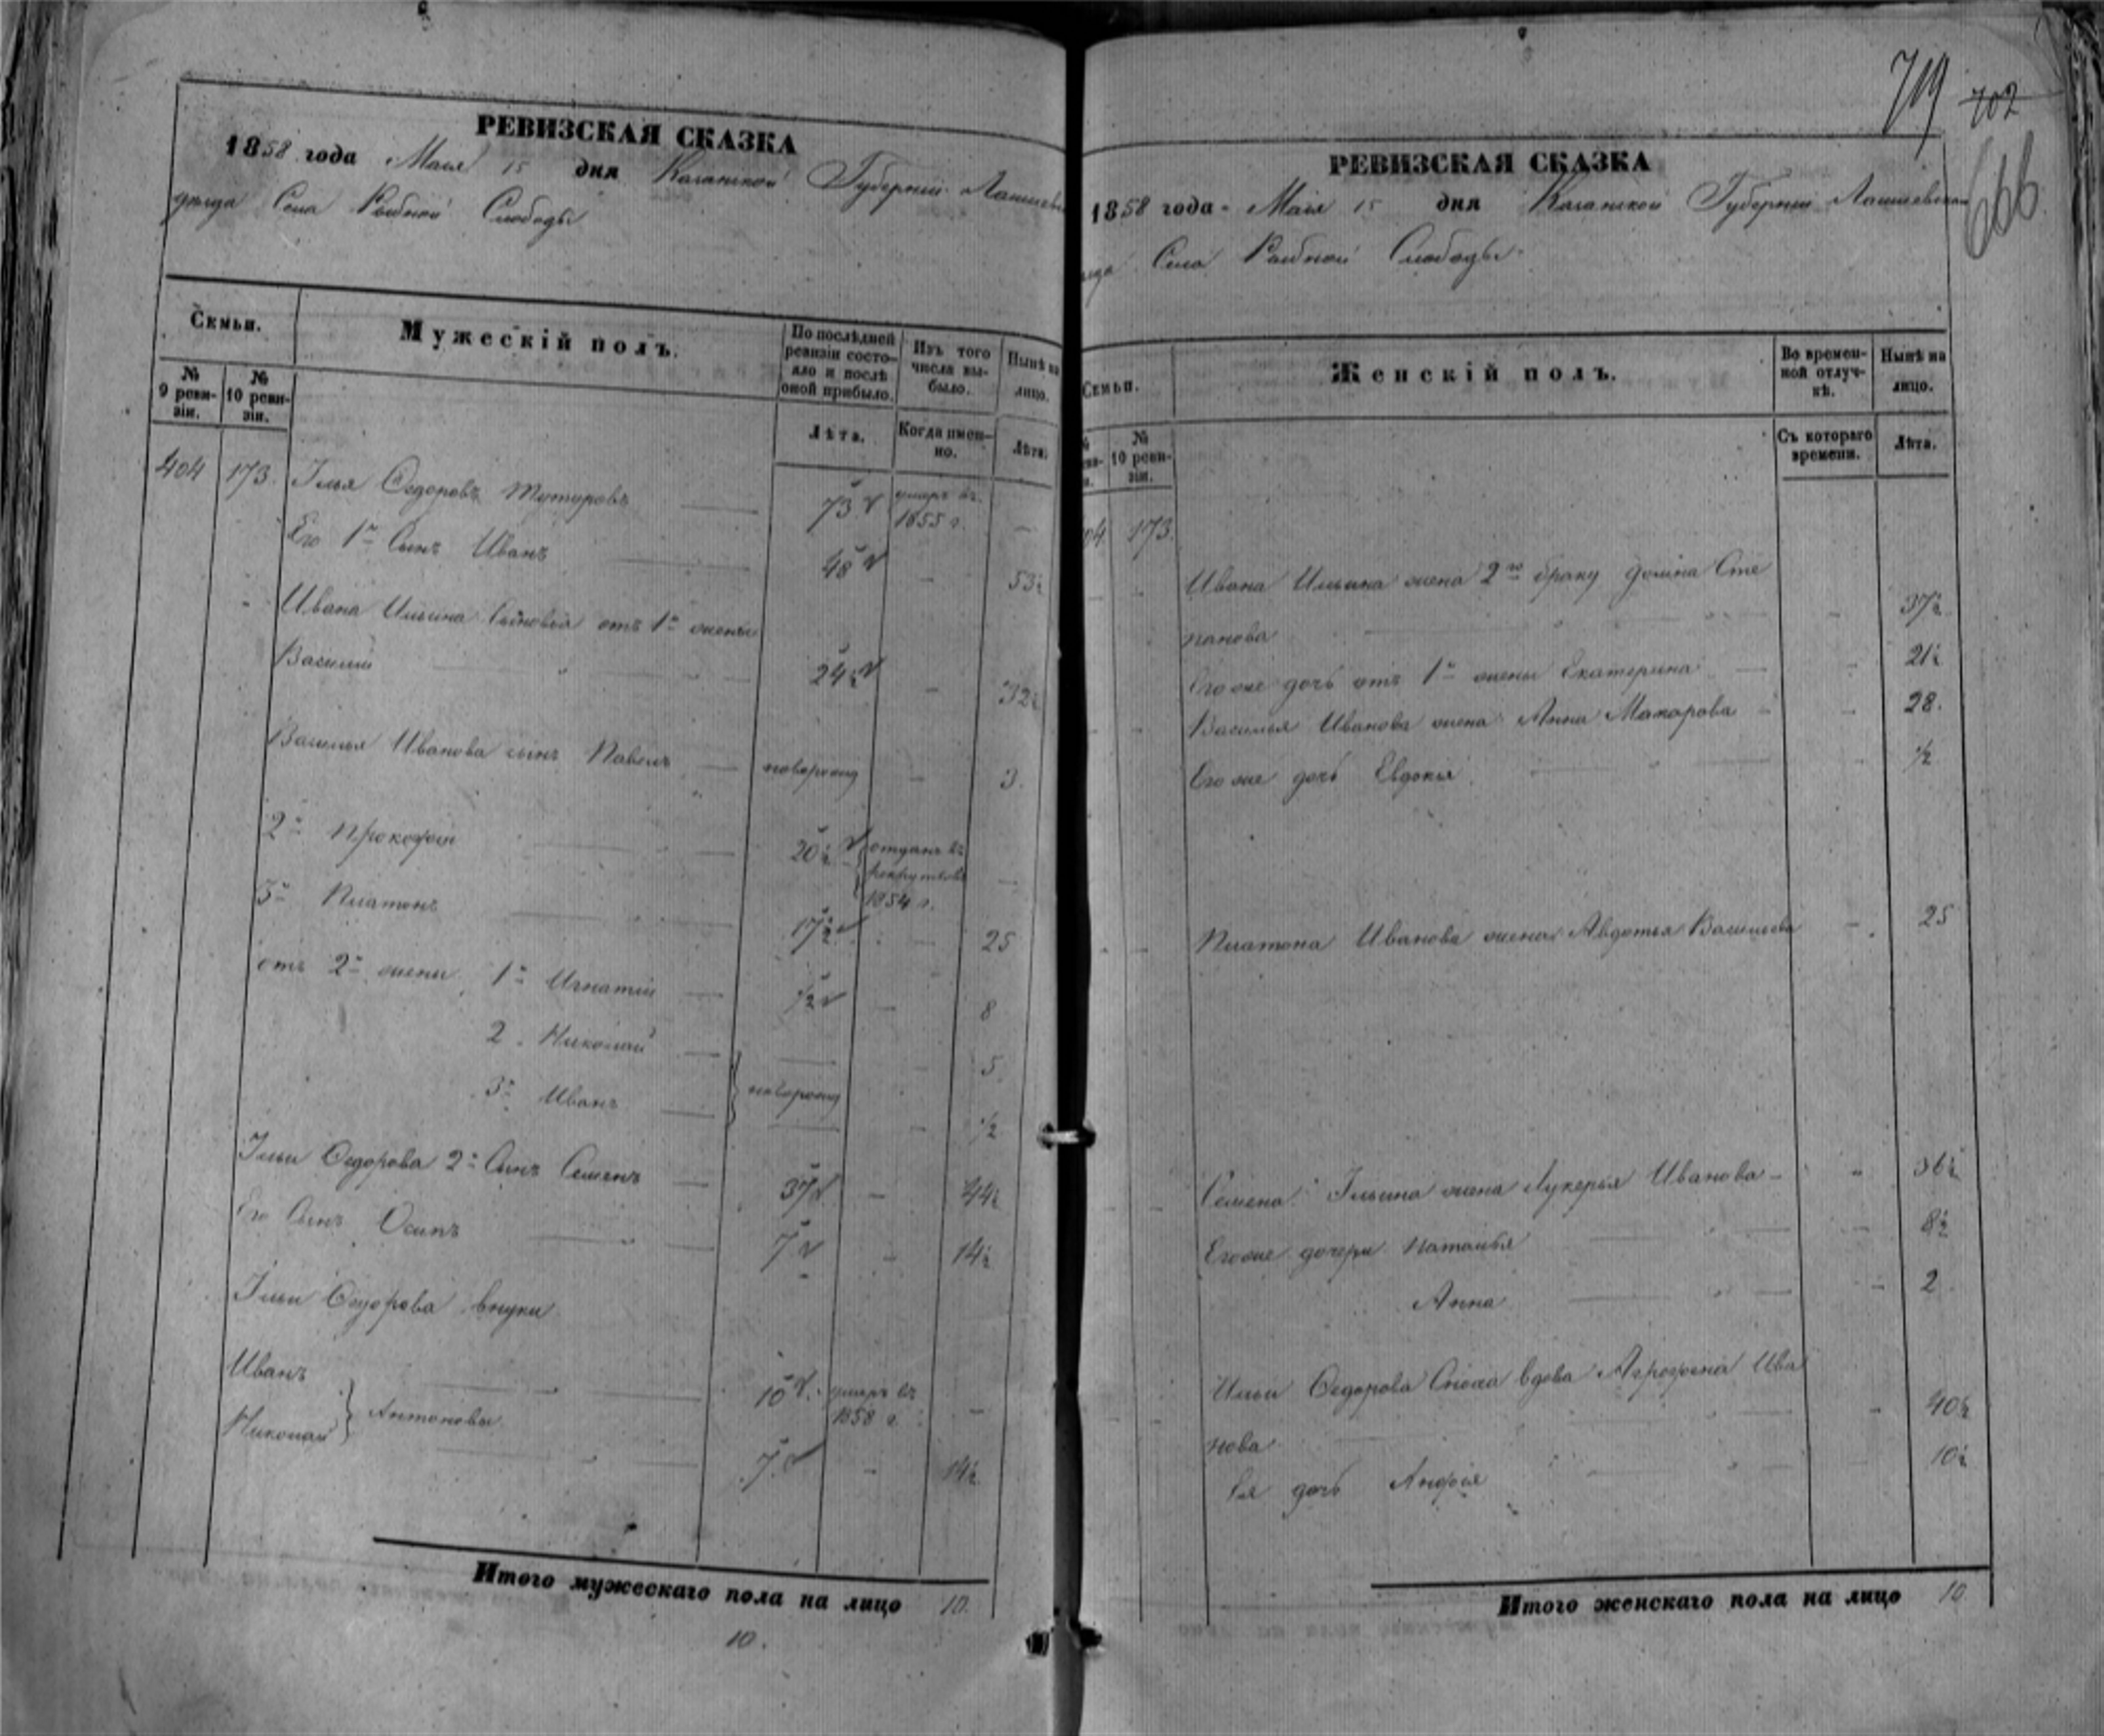 РЕВИЗСКАЯ СКАЗКА
1858 года Маія 15 дня Казанской Губерніи Лаишевс
уѣзда Села Рыбной Слободы
Семьи.
Мужескій полъ.
По послѣдней ревизіи состояло и послѣ оной прибыло.
Изъ того числа выбыло.
Нынѣ на лицо.
№ 9 ревизіи.
№ 10 ревизіи.
Лѣта.
Когда именно.
Лѣта.
404 173. Илья Ѳедоровъ 73 умеръ въ 1855 г. —
Его 1й Сынъ Иванъ 48 — 53½
Ивана Ильина Сыновья отъ 1й жены
Василий 24½ — 32½
Василья Иванова сынъ Павелъ — новорожд — 3.
2й Прокофій 20½ отданъ въ рекруты въ 1854 г. —
3й Платонъ 17½ — 25
отъ 2й жены 1й Игнатій — ½ — 8
2. Николай — — 5.
3й Иванъ — новорожд — ½
Ильи Ѳедорова 2й Сынъ Семенъ — 37 — 44½
Его Сынъ Осипъ 7 — 14½
Ильи Ѳедорова внуки
Иванъ 10 умеръ въ 1858 г. —
Николай } Антоновы 7 — 14½
Итого мужескаго пола на лицо 10.
10.
719 702
666
РЕВИЗСКАЯ СКАЗКА
1858 года Маія 15 дня Казанской Губерніи Лаишевскаго
уѣзда Села Рыбной Слободы
Семьи.
Женскій полъ.
Во временной отлучкѣ.
Нынѣ на лицо.
№ 10 ревизіи.
Съ котораго времени.
Лѣта.
04 173.
Ивана Ильина жена 2го браку Домна Сте
панова — 37½
Его же дочь отъ 1й жены Екатерина — 21½
Василья Иванова жена Анна Макарова — 28.
Его же дочь Евдокія — ½
Платона Иванова жена Авдотья Васильева — 25
Семена Ильина жена Лукерья Иванова — 36½
Его же дочери Наталья — 8½
Анна — 2
Ильи Ѳедорова Сноха вдова Агрофена Ива
нова — 40½
Ея дочь Анфія 10½
Итого женскаго пола на лицо 10